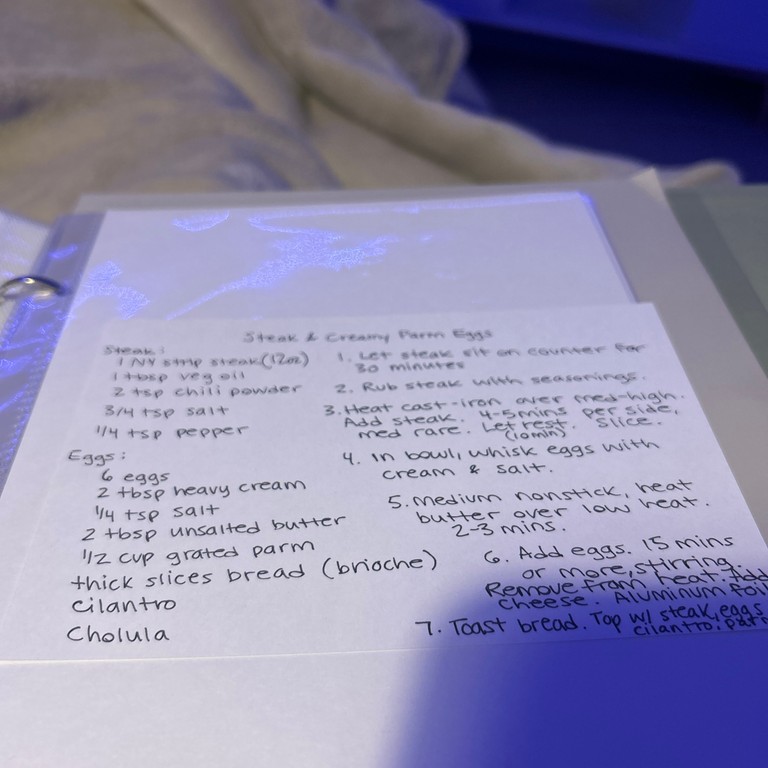 Steak & Creamy Parm Eggs
Steak:
1 NY strip steak (12oz)
1 tbsp veg oil
2 tsp chili powder
3/4 tsp salt
1/4 tsp pepper
Eggs:
6 eggs
2 tbsp heavy cream
1/4 tsp salt
2 tbsp unsalted butter
1/2 cup grated parm
thick slices bread (brioche)
cilantro
Cholula
1. Let steak sit on counter for
30 minutes
2. Rub steak with seasonings.
3. Heat cast-iron over med-high.
Add steak. 4-5mins per side,
med rare. Let rest. Slice.
(10min)
4. In bowl, whisk eggs with
cream & salt.
5. Medium nonstick, heat
butter over low heat.
2-3 mins.
6. Add eggs. 15 mins
or more, stirring.
Remove from heat. Add
cheese. Aluminum foil
7. Toast bread. Top w/ steak, eggs
cilantro.